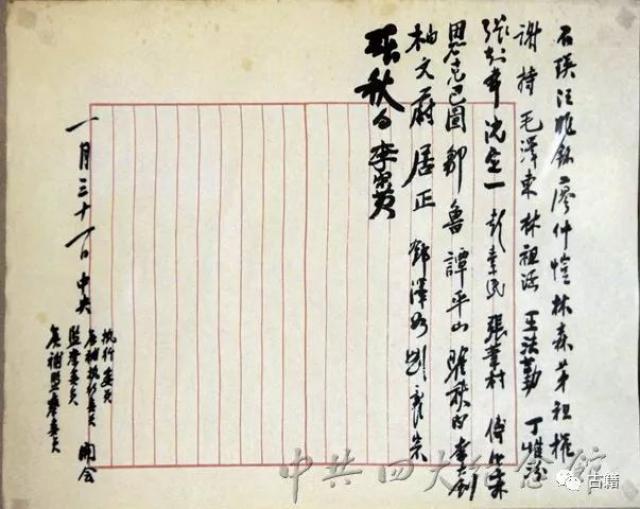 石瑛 汪兆銘 廖仲愷 林森 茅祖權
謝持 毛澤東 林祖涵 王法勤 丁惟汾
張知本 沈定一 彭素民 張葦村 傅汝霖
恩克巴圖 鄒魯 譚平山 瞿秋白 李大釗
柏文蔚 居正 鄧澤如
張秋白 李宗黃
一月三十一日中央
執行委員
候補執行委員
監察委員
候補監察委員
開會
中共四大纪念館
古籍